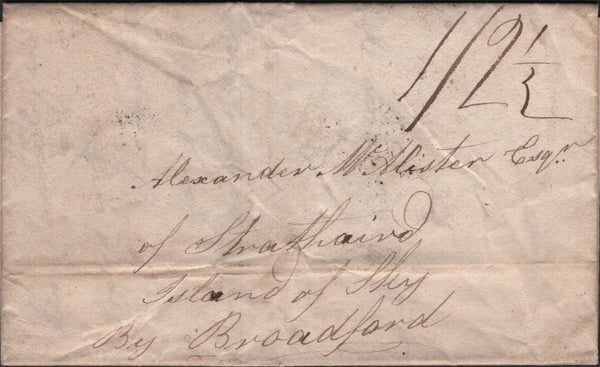 1/2½
Alexander McAlister Esqr.
of Strathaird
Island of Sky
By Broadford